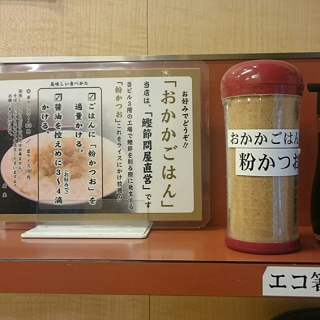 お好みでどうぞ!!
「おかかごはん」
当店は、「鰹節問屋直営」です
当ビル3階の工場で鰹節を削る際に発生する
「粉かつお」これをライスにかけ放題!!
美味しい食べかた
ごはんに「粉かつお」を
適量かける。
醤油を控えめに3〜4滴
かける。(お好みで)
おかかごはん
粉かつお
エコ箸